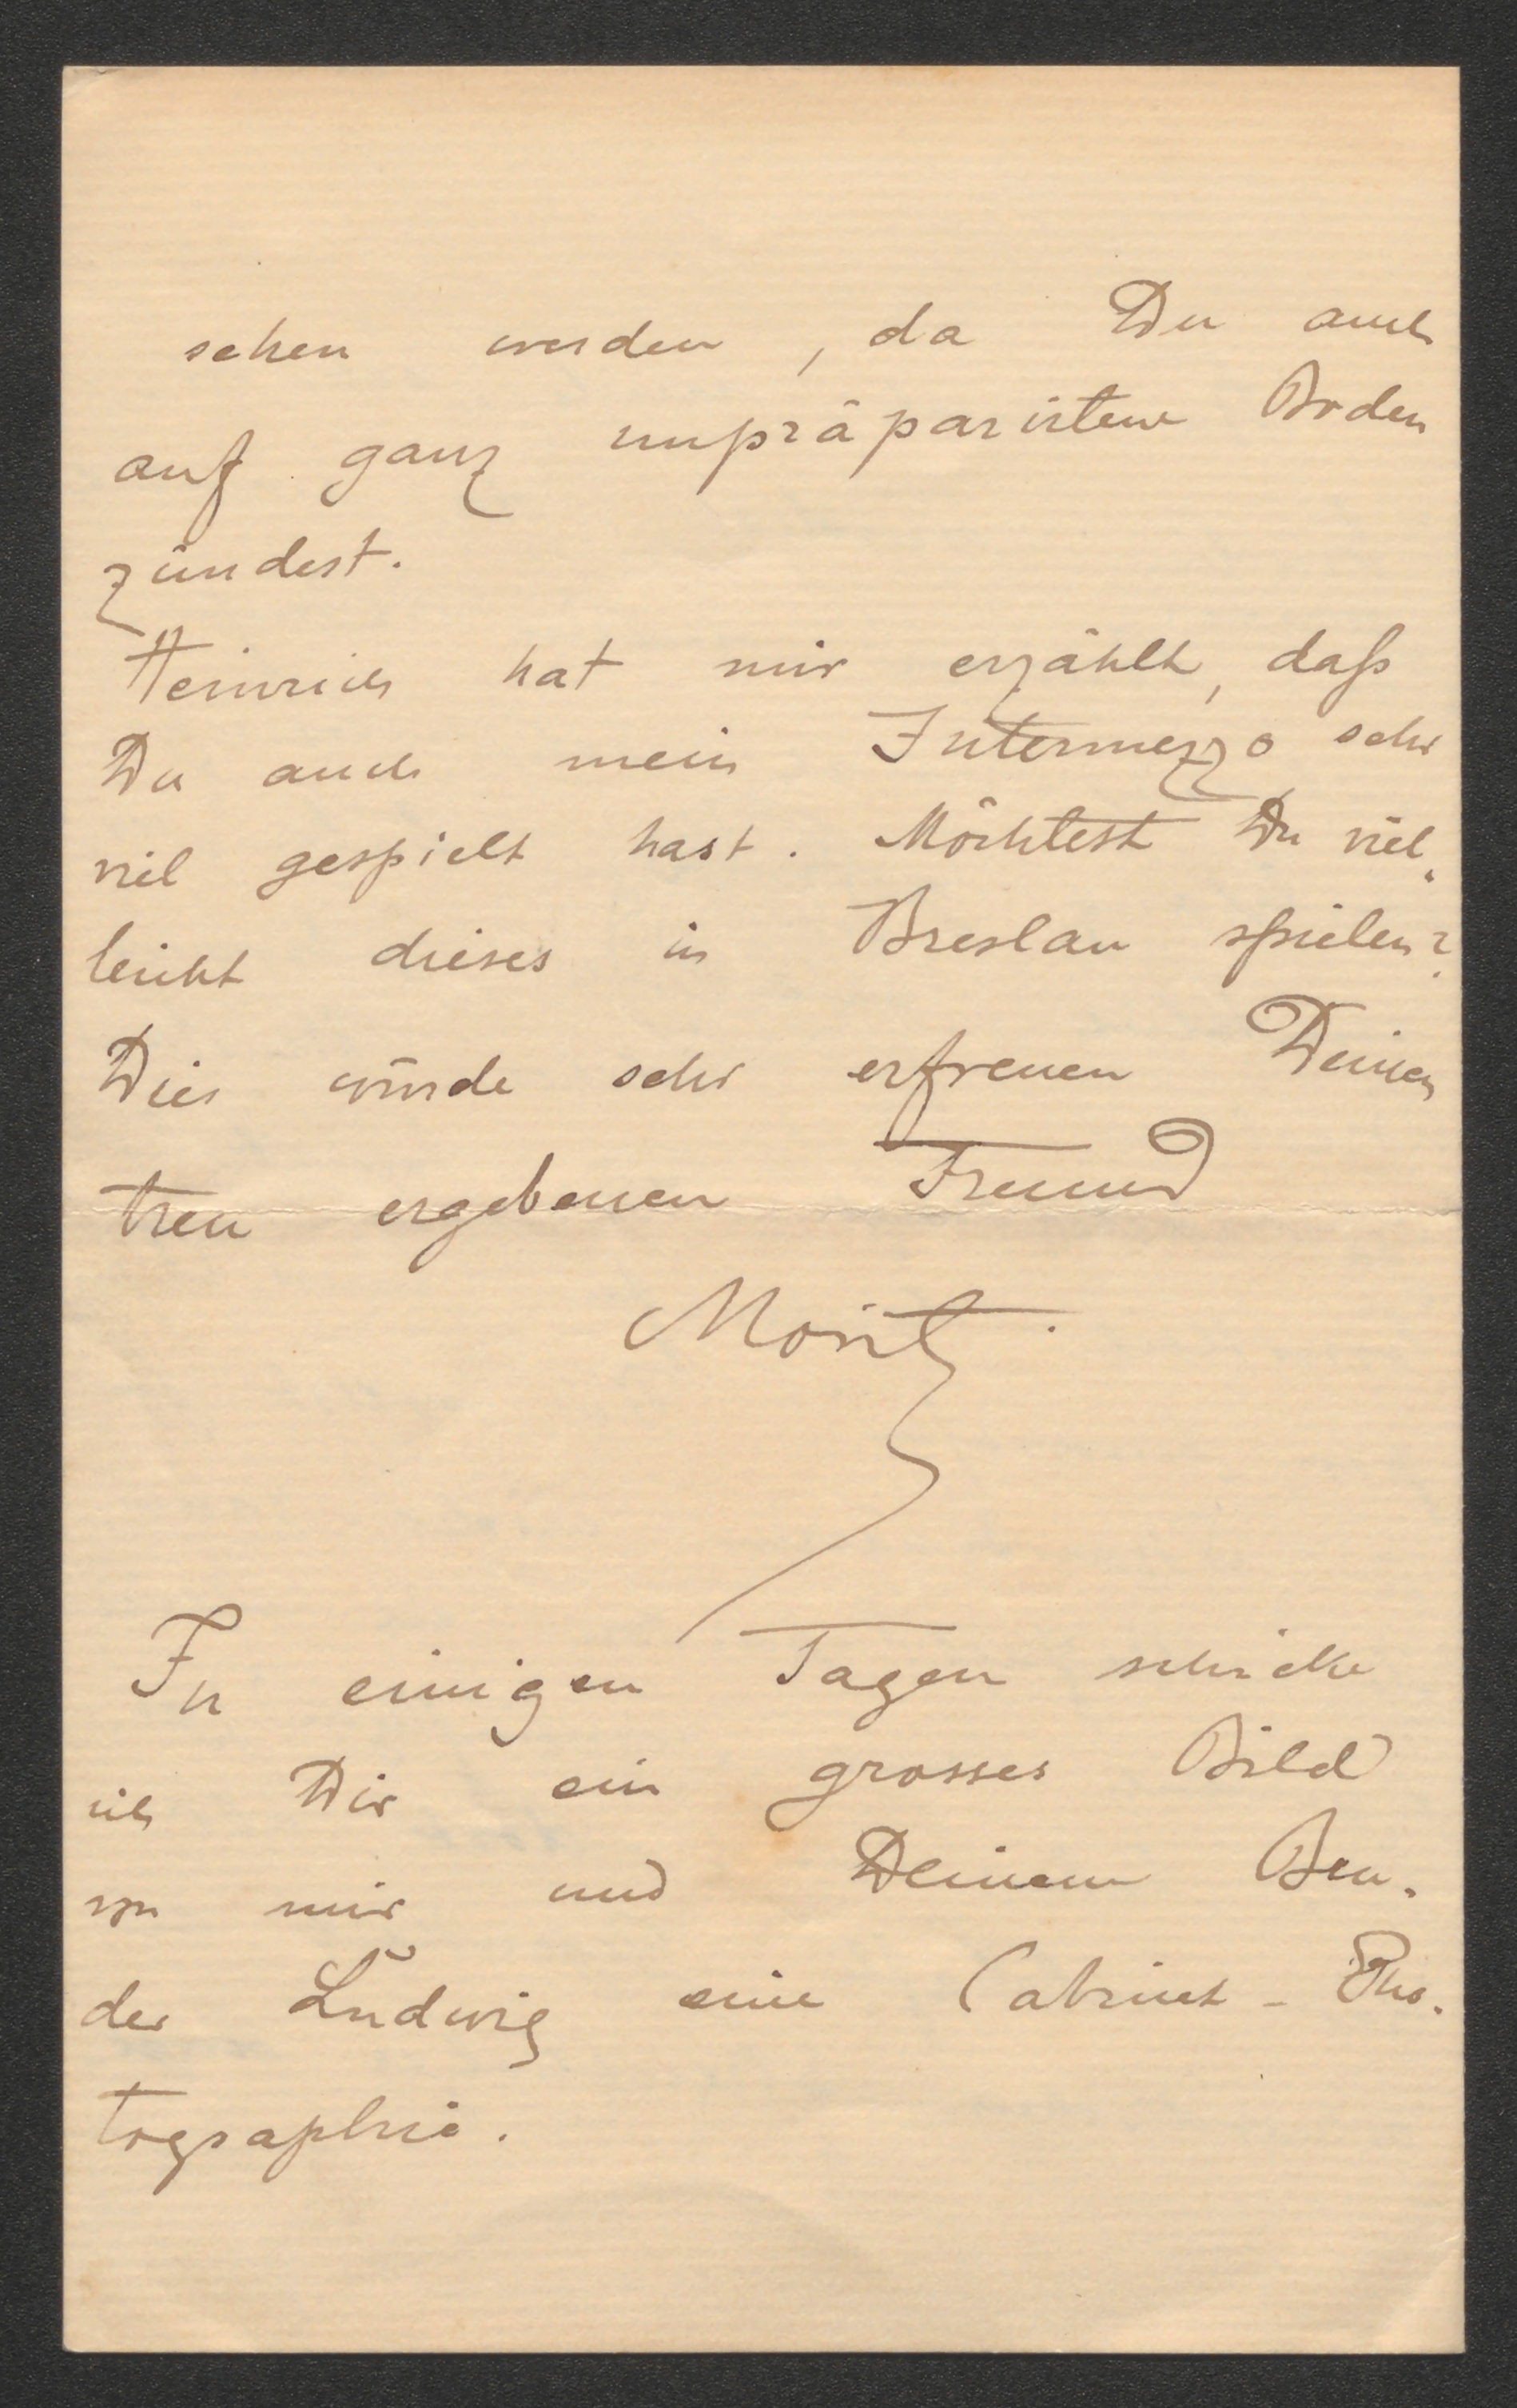 sehen werden, da Du auch
auf ganz unpräparirtem Boden
zündest.
Heinrich hat mir erzählt, daß
Du auch mein Intermezzo sehr
viel gespielt hast. Möchtest Du viel-
leicht dieses in Breslau spielen?
Dies würde sehr erfreuen Deinen
treu ergebenen Freund
Moritz.
In einigen Tagen schicke
ich Dir ein grosses Bild
von mir und Deinem Bru-
der Ludwig eine Cabinet-Pho-
tographie.